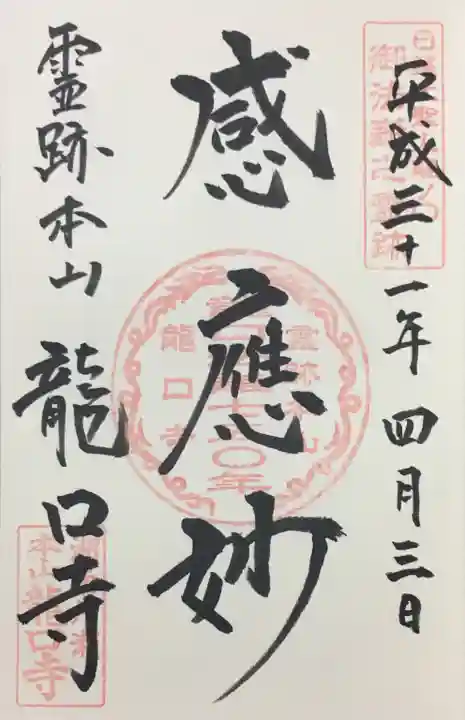 平成三十一年 四月三日
感應妙
霊跡本山 龍口寺
霊跡本山
龍口寺
本山龍口寺